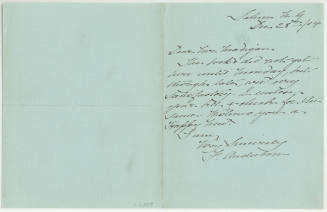 Salem N.Y.
Dec 28th/04
Dear Mr. Madigan
The books did not get
here until Monday, but
though late, are very
satisfactory. I enclose
your bill & check for the
same. Wishing you a
Happy New
I am,
Yours Sincerely
F. Anderson